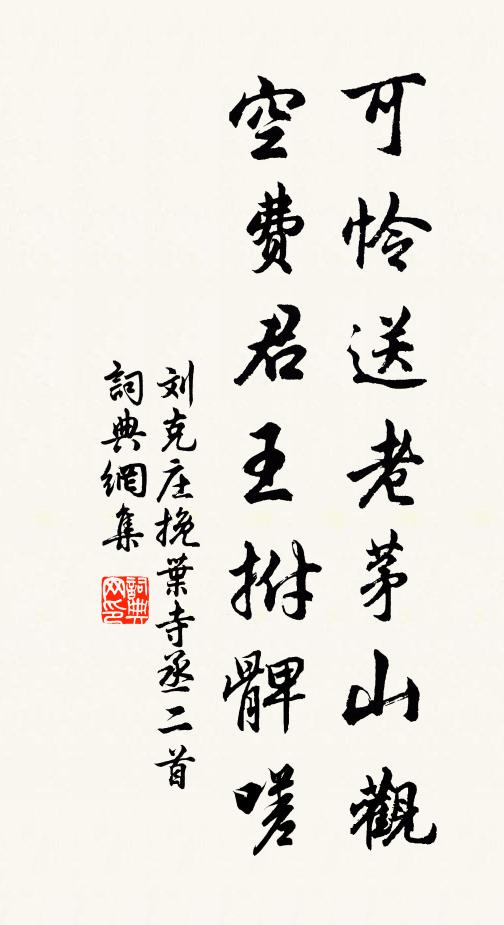 可怜送老茅山觀
空費君王拊髀嗟
刘克庄挽葉寺丞二首
詞典網集
詞典網印